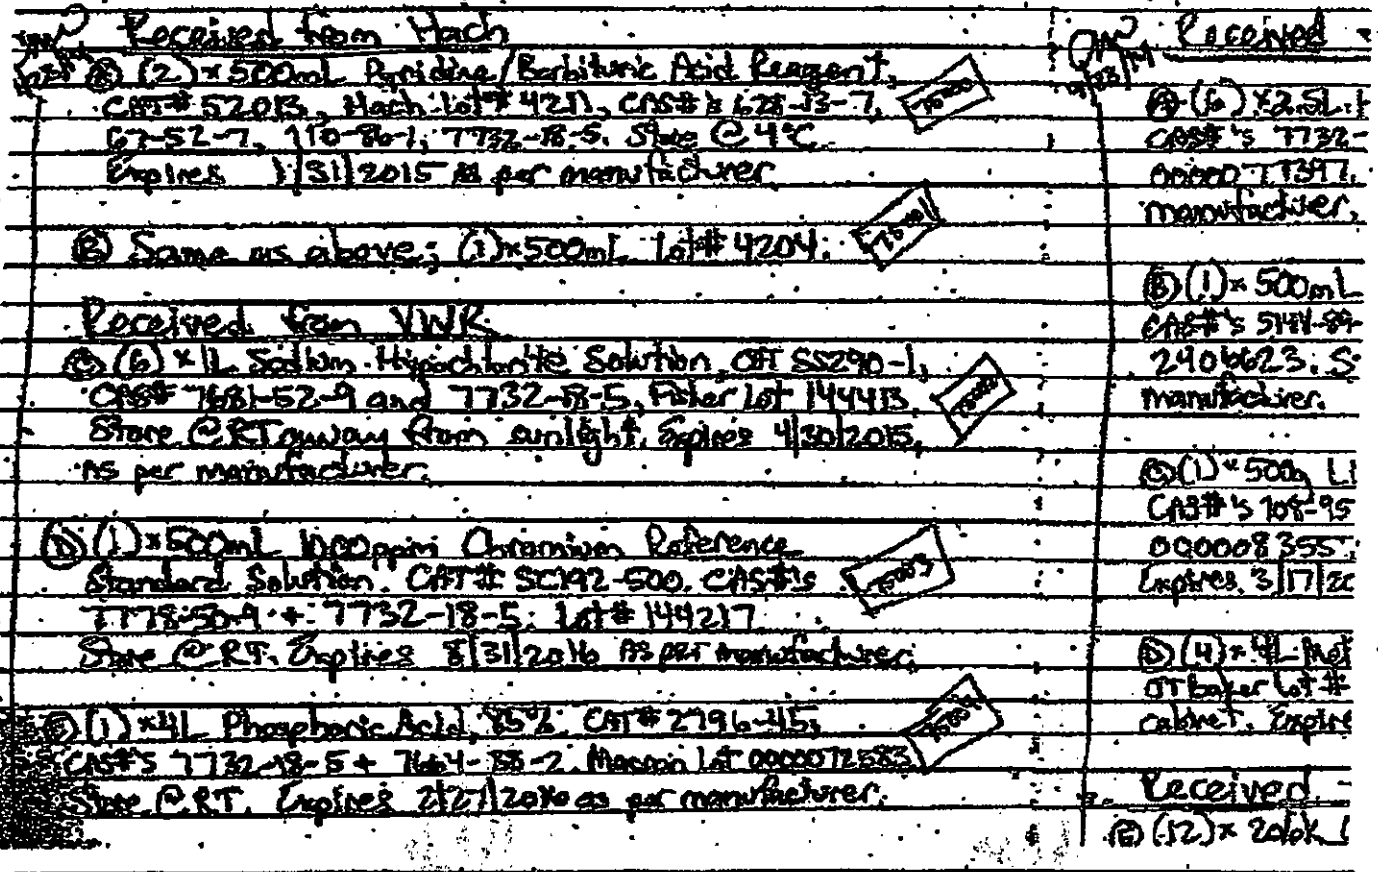 Received from Hach
(A) (2) × 500mL Pyridine/Barbituric Acid Reagent,
CAT# 52013, Hach Lot# 4211, CAS#'s 628-13-7,
67-52-7, 110-86-1, 7732-18-5. Store @ 4°C.
Expires 1/31/2015 as per manufacturer
(B) Same as above; (1)×500mL Lot# 4204.
75001
Received from VWR
(C) (6) × 1L Sodium Hypochlorite Solution, CAT SS290-1,
CAS# 7681-52-9 and 7732-18-5, Fisher Lot 144413
Store @ RT away from sunlight. Expires 4/30/2015,
As per manufacturer.
(D) (1) × 500mL 1000ppm Chromium Reference
Standard Solution. CAT# SC192-500. CAS#'s
75003
7778-50-9 + 7732-18-5. Lot# 144217
Store @ RT. Expires 8/31/2016 As per manufacturer.
(E) (1) × 4L Phosphoric Acid, 85% CAT# 2796-45,
CAS#'s 7732-18-5 + 7664-38-2. Lot 0000072583
75004
Store @ RT. Expires as per manufacturer.
Received
(A) (6) × 2.5L
CAS#'s 7732-
0000077397.
manufacturer.
(B) (1) × 500mL
CAS#'s
2406623. S
manufacturer.
(C) (1) × 500g Li
CAS#'s 108-95
000008355
Expires 3/17/20
(D) (4) × 4L
JT Baker Lot #
cabinet. Expire
Received
(E) (12) ×